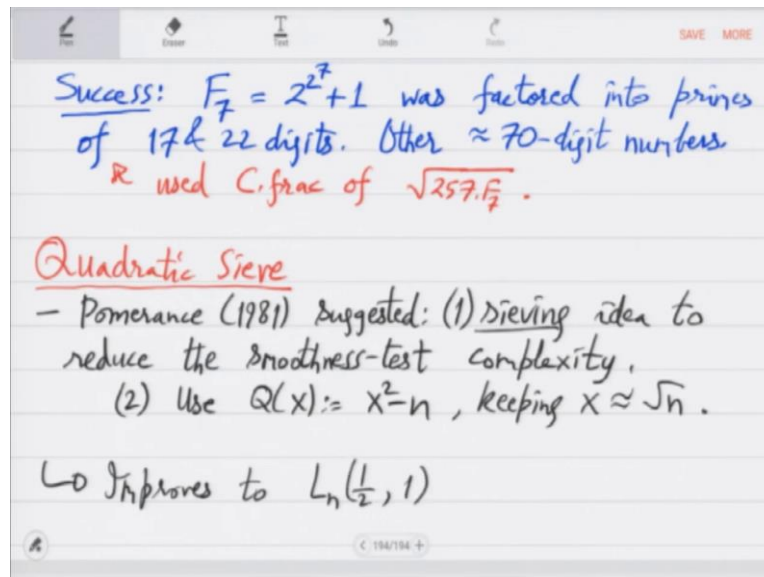 Pen Eraser Text Undo Redo SAVE MORE
Success: F₇ = 2^{2^7}+1 was factored into primes
of 17 & 22 digits. Other ≈ 70-digit numbers.
used C.frac of √257.F₇ .
Quadratic Sieve
- Pomerance (1981) suggested: (1) sieving idea to
reduce the smoothness-test complexity.
(2) Use Q(x) := x²-n , keeping x ≈ √n .
↳ Improves to Lₙ(½, 1)
< 194/194 +